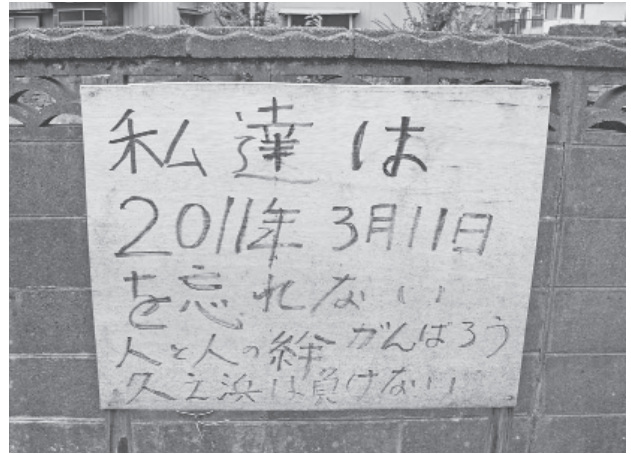 私達は
2011年3月11日
を忘れない
人と人の絆 がんばろう
久之浜は負けない